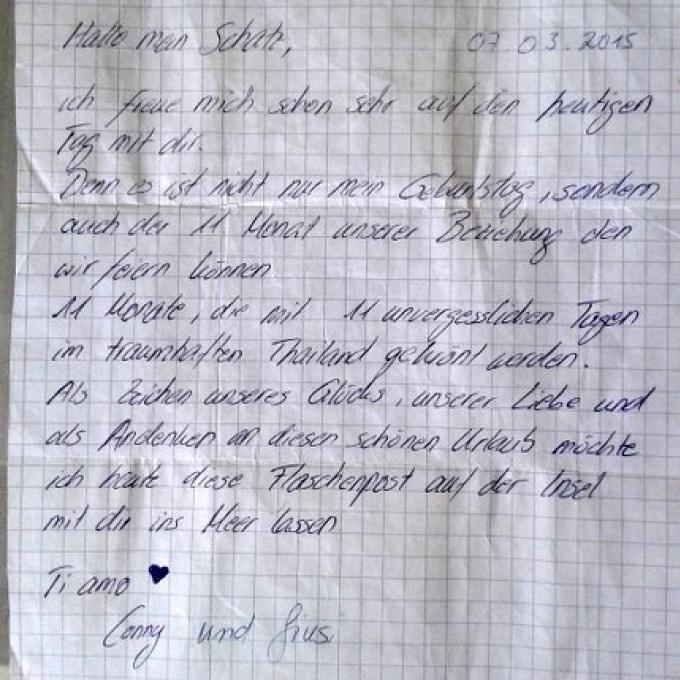 Hallo mein Schatz, 07.03.2015
ich freue mich schon sehr auf den heutigen
Tag mit dir.
Denn es ist nicht nur mein Geburtstag, sondern
auch der 11 Monat unserer Beziehung den
wir feiern können
11 Monate, die mit 11 unvergesslichen Tagen
im traumhaften Thailand gekrönt werden.
Als Zeichen unseres Glücks, unserer Liebe und
als Andenken an diesen schönen Urlaub möchte
ich heute diese Flaschenpost auf der Insel
mit dir ins Meer lassen
Ti amo ♥
Conny und Giusi